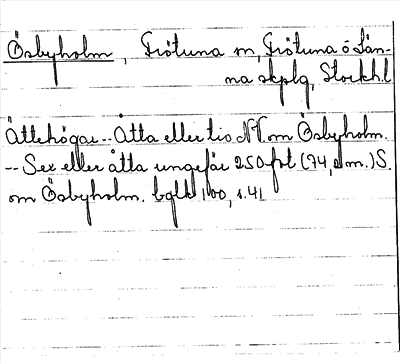 Ösbyholm, Frötuna sn, Frötuna ö Län-
na skplg, Stockh.l
Ättehögar -- Åtta eller tio NV om Ösbyholm.
-- Sex eller åtta ungefär 250 fot (74,2m.) S.
om Ösbyholm. bglk 100, s. 41